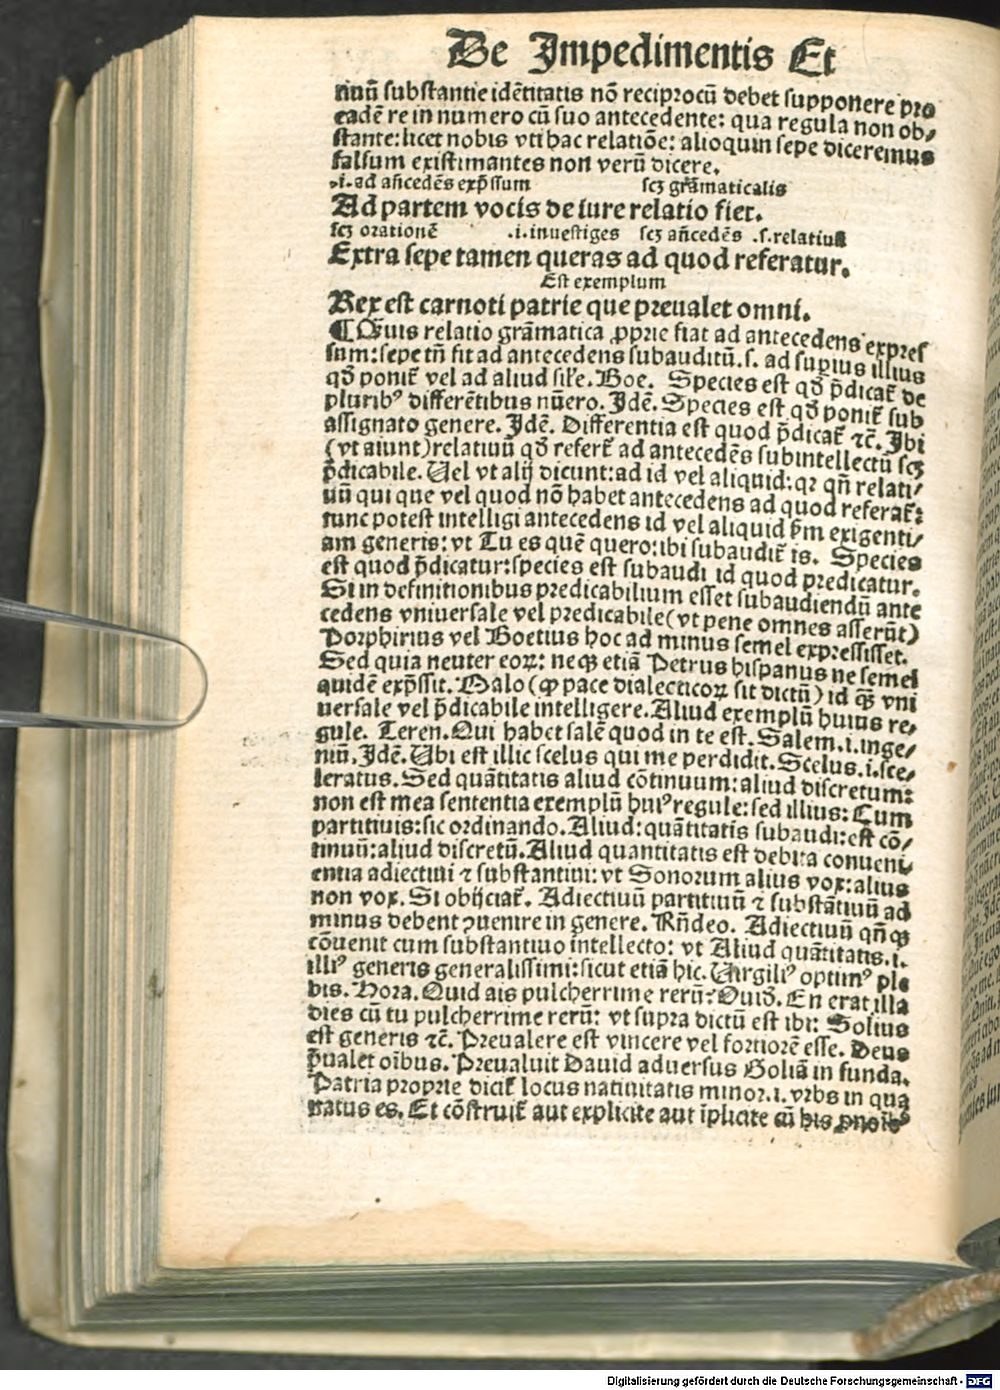 De Impedimentis Et
tiuū substantie idētitatis nō reciprocū debet supponere pro
eadē re in numero cū suo antecedente: qua regula non ob⸗
stante: licet nobis vti hac relatiōe: alioquin sepe diceremus
falsum existimantes non verū dicere.
.i. ad añcedēs exp̄ssum scꝫ grāmaticalis
Ad partem vocis de iure relatio fiet.
scꝫ orationē .i. inuestiges scꝫ añcedēs .s. relatiuū
Extra sepe tamen queras ad quod referatur.
Est exemplum
Rex est carnoti patrie que preualet omni.
¶ Q̄uis relatio grāmatica ꝓprie fiat ad antecedens expres
sum: sepe tn̄ fit ad antecedens subauditū .s. ad supius illius
qđ ponit᷑ vel ad aliud sil'e. Boe. Species est qđ p̄dicat᷑ de
pluribꝰ differētibus nūero. Idē. Species est qđ ponit᷑ sub
assignato genere. Idē. Differentia est quod p̄dicat᷑ ⁊c̄. Ibi
(vt aiunt) relatiuū qđ refert᷑ ad antecedēs subintellectū scꝫ
p̄dicabile. Uel vt alij dicunt: ad id vel aliquid: qꝛ qn̄ relati⸗
uū qui que vel quod nō habet antecedens ad quod referat᷑:
tunc potest intelligi antecedens id vel aliquid ẜm exigenti⸗
am generis: vt Tu es quē quero: ibi subaudit᷑ is. Species
est quod p̄dicatur: species est subaudi id quod predicatur.
Si in definitionibus predicabilium esset subaudiendū ante
cedens vniuersale vel predicabile (vt pene omnes asserūt)
Porphirius vel Boetius hoc ad minus semel expressisset.
Sed quia neuter eoꝝ: neqꝫ etiā Petrus hispanus ne semel
quidē exp̄ssit. Malo (ꝙ pace dialecticoꝝ sit dictū) id qꝫ vni
uersale vel p̄dicabile intelligere. Aliud exemplū huius re⸗
gule. Teren. Qui habet salē quod in te est. Salem .i. inge⸗
niū. Idē. Ubi est illic scelus qui me perdidit. Scelus .i. sce⸗
leratus. Sed quātitatis aliud cōtinuum: aliud discretum:
non est mea sententia exemplū huiꝰ regule: sed illius: Cum
partitiuis: sic ordinando. Aliud: quātitatis subaudi: est cō⸗
tinuū: aliud discretū. Aliud quantitatis est debita conueni⸗
entia adiectiui ⁊ substantiui: vt Sonorum alius vox: alius
non vox. Si obijciat᷑. Adiectiuū partitiuū ⁊ substātiuū ad
minus debent ꝯuenire in genere. Rn̄deo. Adiectiuū qn̄qꝫ
cōuenit cum substantiuo intellecto: vt Aliud quātitatis .i.
illiꝰ generis generalissimi: sicut etiā hic. Uirgiliꝰ optimꝰ ple
bis. Hora. Quid ais pulcherrime rerū? Ouiđ. En erat illa
dies cū tu pulcherrime rerū: vt supra dictū est ibi: Solius
est generis ⁊c̄. Preualere est vincere vel fortiorē esse. Deus
p̄ualet oībus. Preualuit Dauid aduersus Goliā in funda.
Patria proprie dicit᷑ locus natiuitatis minor .i. vrbs in qua
natus es. Et cōstruit᷑ aut explicite aut īplicite cū his
Digitalisierung gefördert durch die Deutsche Forschungsgemeinschaft - DFG